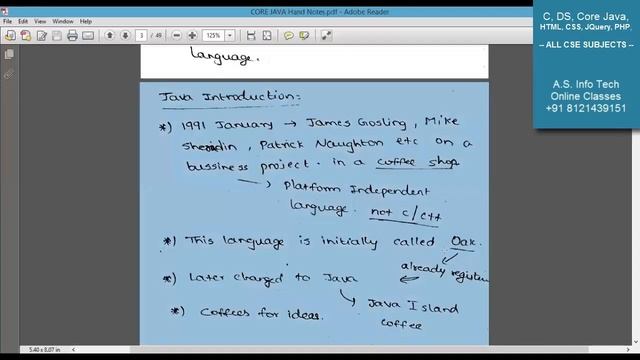 CORE JAVA Hand Notes.pdf - Adobe Reader
3 / 49
125%
Tools
Sign
Comment
C, DS, Core Java,
HTML, CSS, JQuery, PHP,
-- ALL CSE SUBJECTS --
A.S. Info Tech
Online Classes
+91 8121439151
language.
Java Introduction:
*) 1991 January → James Gosling, Mike
Sheridin, Patrick Naughton etc on a
bussiness project. in a coffee shop
→ Platform Independent
language. not c/c++
*) This language is initially called Oak.
already registere
*) Later changed to Java
Java Island
coffee
*) Coffees for ideas.
5.40 x 8.07 in